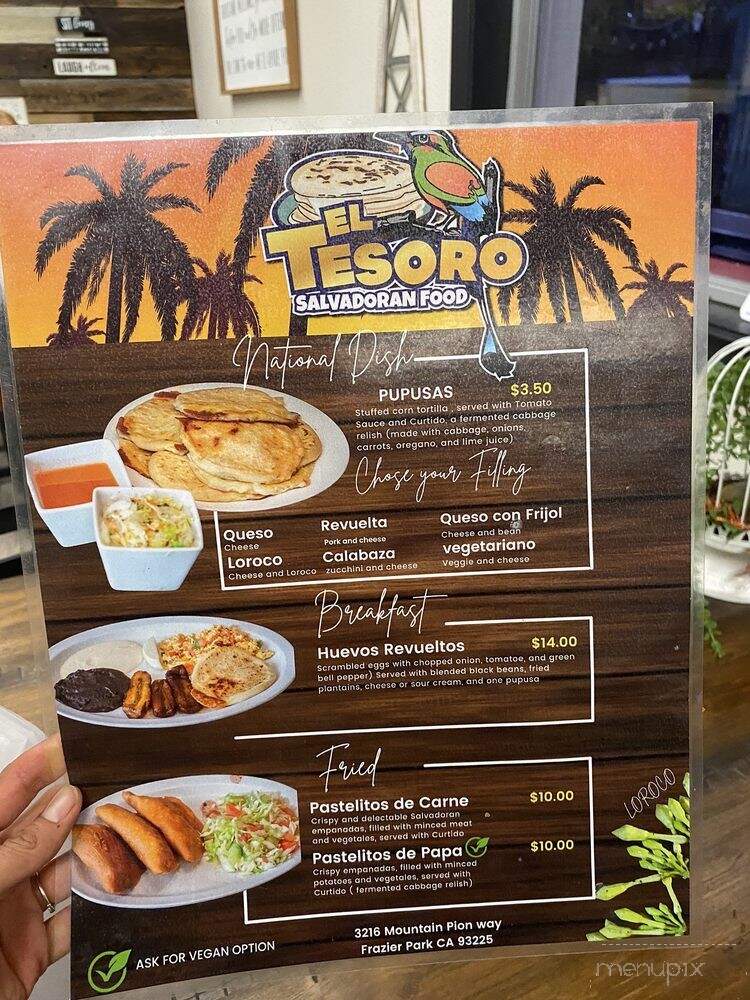 LAUGH often
EL
TESORO
SALVADORAN FOOD
National Dish
PUPUSAS $3.50
Stuffed corn tortilla , served with Tomato
Sauce and Curtido, a fermented cabbage
relish (made with cabbage, onions,
carrots, oregano, and lime juice)
Chose your Filling
Queso
Cheese
Loroco
Cheese and Loroco
Revuelta
Pork and cheese
Calabaza
zucchini and cheese
Queso con Frijol
Cheese and bean
vegetariano
Veggie and cheese
Breakfast
Huevos Revueltos $14.00
Scrambled eggs with chopped onion, tomatoe, and green
bell pepper) Served with blended black beans, fried
plantains, cheese or sour cream, and one pupusa
Fried
Pastelitos de Carne $10.00
Crispy and delectable Salvadoran
empanadas, filled with minced meat
and vegetales, served with Curtido
Pastelitos de Papa $10.00
Crispy empanadas, filled with minced
potatoes and vegetales, served with
Curtido ( fermented cabbage relish)
LOROCO
3216 Mountain Pion way
Frazier Park CA 93225
ASK FOR VEGAN OPTION
menupix